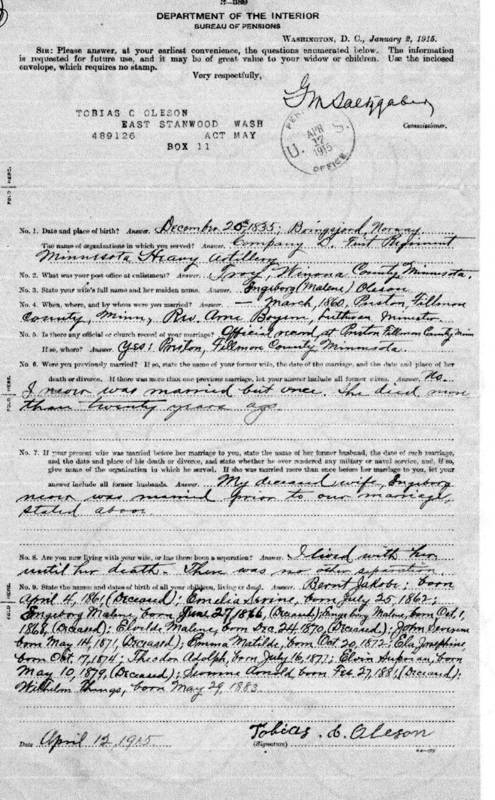 DEPARTMENT OF THE INTERIOR
BUREAU OF PENSIONS
WASHINGTON, D. C., January 2, 1915.
SIR: Please answer, at your earliest convenience, the questions enumerated below. The information
is requested for future use, and it may be of great value to your widow or children. Use the inclosed
envelope, which requires no stamp.
Very respectfully,
G M Saltzgaber
Commissioner.
TOBIAS C OLESON
EAST STANWOOD WASH
489126 ACT MAY
BOX 11
U. S. PENSION OFFICE
APR 17 1915
No. 1. Date and place of birth? Answer. December 20th 1835; Norway.
The name of organizations in which you served? Answer. Company D. First Regiment
Minnesota Heavy Artillery
No. 2. What was your post office at enlistment? Answer. Troy, Winona County, Minnesota.
No. 3. State your wife's full name and her maiden name. Answer. Engeborg (Malene) Oleson
No. 4. When, where, and by whom were you married? Answer. March, 1860. Preston, Fillmore
County, Minn, Rev. Arne Boyum, Lutheran Minister.
No. 5. Is there any official or church record of your marriage? Official record, at Preston Fillmore County Minn
If so, where? Answer. Yes: Preston, Fillmore County Minnesota.
No. 6. Were you previously married? If so, state the name of your former wife, the date of the marriage, and the date and place of her
death or divorce. If there was more than one previous marriage, let your answer include all former wives. Answer. No.
I never was married but once. She died more
than twenty years ago.
No. 7. If your present wife was married before her marriage to you, state the name of her former husband, the date of such marriage,
and the date and place of his death or divorce, and state whether he ever rendered any military or naval service, and, if so,
give name of the organization in which he served. If she was married more than once before her marriage to you, let your
answer include all former husbands. Answer. My deceased wife, Engeborg
never was married prior to our marriage,
stated above.
No. 8. Are you now living with your wife, or has there been a separation? Answer. I lived with her
until her death. There was no other separation
No. 9. State the names and dates of birth of all your children, living or dead. Answer. Bernt Jakobe; born
April 4, 1861, (Deceased); Emelia born July 25, 1862;
Engeborg Malene, born June 27 1866, (Deceased); Engeborg Malene, born Oct. 1,
1868, (Deceased); Malene, born Dec. 24, 1870, (Deceased); John Severine
born May 14, 1871, (Deceased); Emma Matilde, born Oct. 20, 1872; Josephine,
born Oct. 17, 1874; Theodor Adolph, born July 16, 1877; Elvin born
May 10, 1879, (Deceased); Arnold, born Feb. 27, 1881, (Deceased);
Wilhelm born May 29, 1883.
Date April 12, 1915
Tobias. C. Oleson
(Signature)
FOLD HERE.
FOLD HERE.
FOLD HERE.